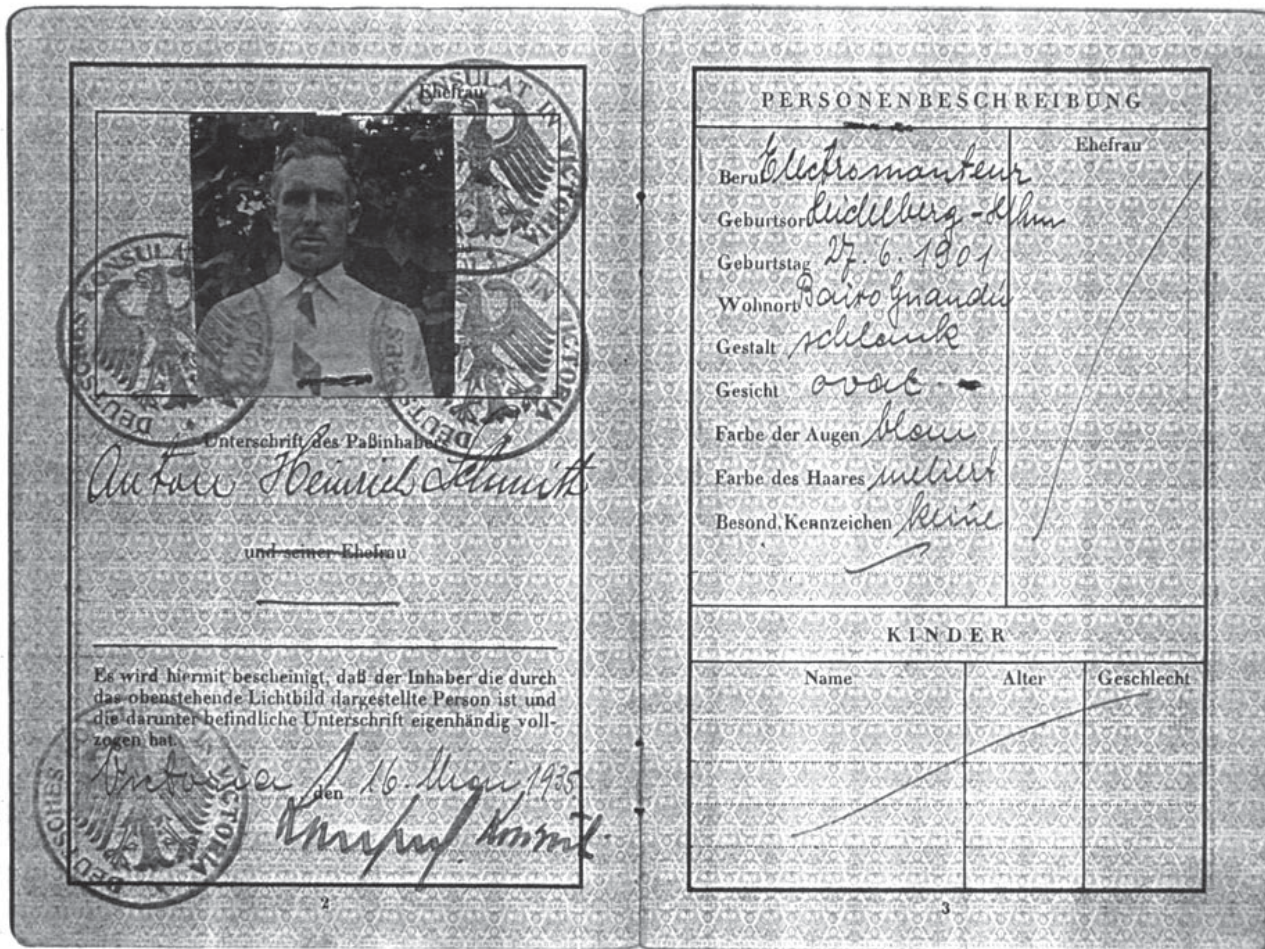 Ehefrau
DEUTSCHES KONSULAT IN VICTORIA
DEUTSCHES KONSULAT IN VICTORIA
DEUTSCHES KONSULAT IN VICTORIA
Unterschrift des Paßinhabers
Anton Heinrich Schmitt
und seiner Ehefrau
Es wird hiermit bescheinigt, daß der Inhaber die durch
das obenstehende Lichtbild dargestellte Person ist und
die darunter befindliche Unterschrift eigenhändig voll-
zogen hat.
Victoria, den 16. Mai 1935
Konsul
DEUTSCHES KONSULAT IN VICTORIA
2
PERSONENBESCHREIBUNG
Ehefrau
Beruf Electromonteur
Geburtsort Heidelberg
Geburtstag 27. 6. 1901
Wohnort Bairo Guandu
Gestalt schlank
Gesicht oval
Farbe der Augen blau
Farbe des Haares meliert
Besond. Kennzeichen keine
KINDER
Name Alter Geschlecht
3